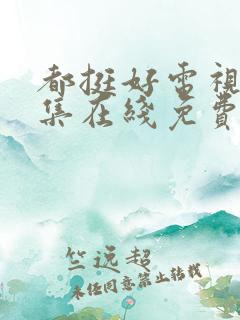 都挺好电視
集在綫免費
竺远超
未经同意禁止转载